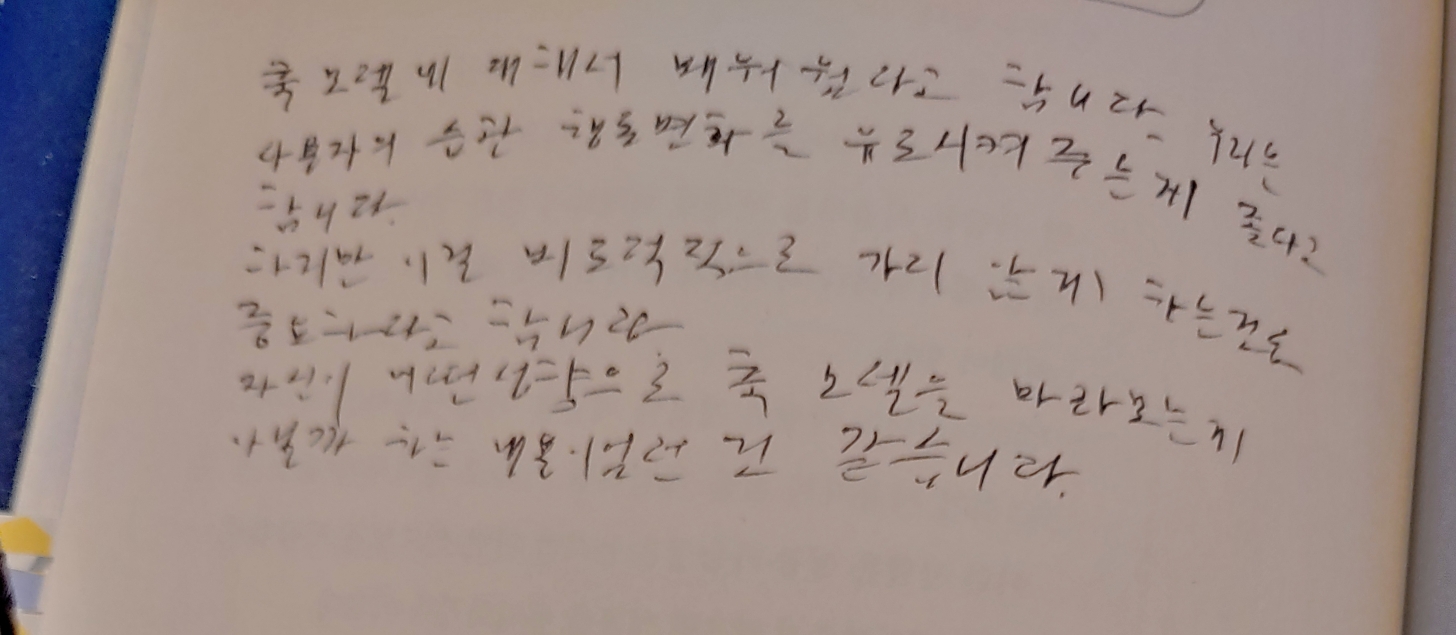 훅 모델에 대해서 배워웠다고 합니다. 우리는
사용자의 습관 행동변화를 유도시켜 주는게 좋다고
합니다.
하지만 이걸 비도덕적으로 가리 않게 하는건도
중요하다고 합니다
자신이 어떤성향으로 훅 모델을 바라보는지
아볼까 하는 내용이었던 건 같습니다.